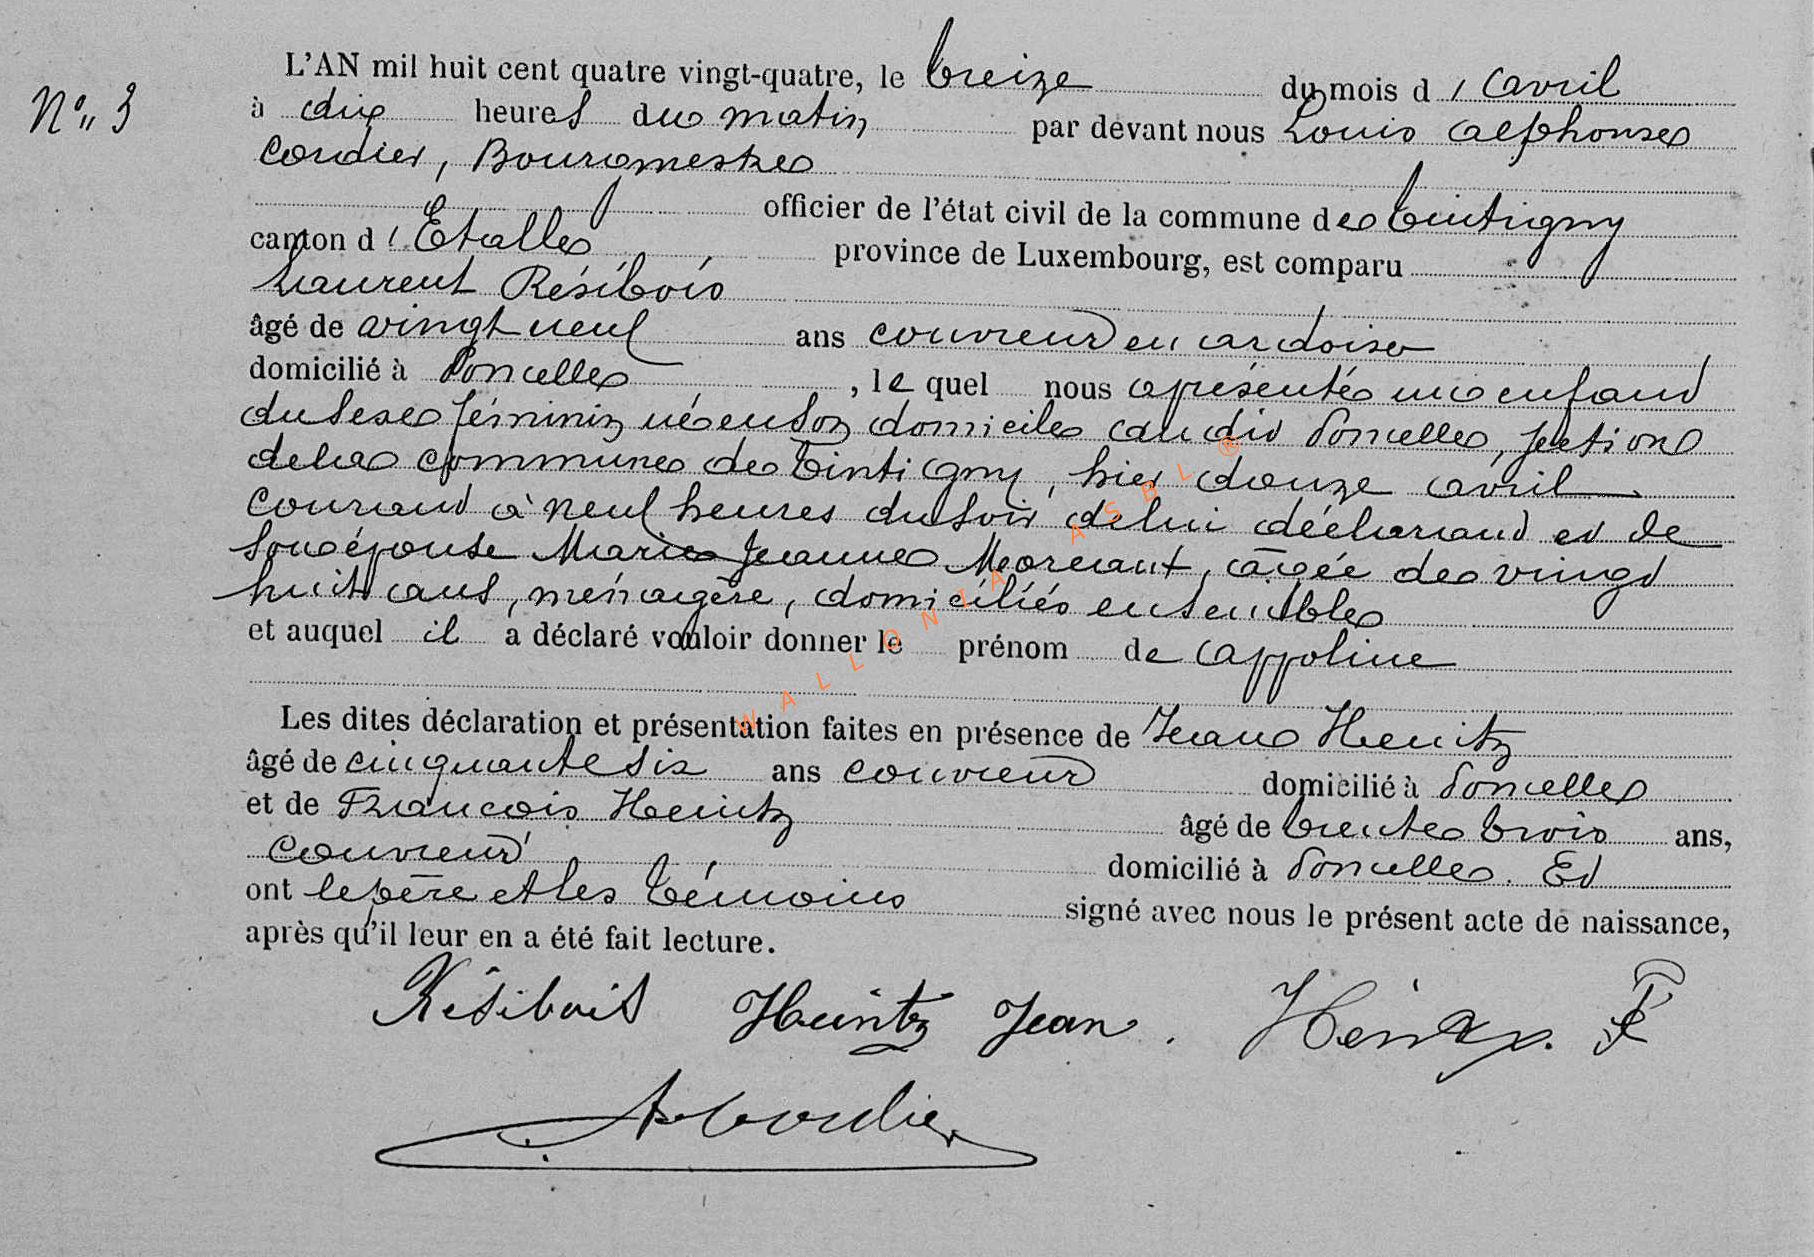 N° 3
L'AN mil huit cent quatre vingt-quatre, le treize du mois d'avril
à dix heures du matin par devant nous Louis Alphonse
Cordier, Bourgmestre
officier de l'état civil de la commune de Tintigny
canton d'Etalle province de Luxembourg, est comparu
Laurent Résibois
âgé de vingt neuf ans couvreur en ardoise
domicilié à Poncelle, le quel nous a présenté un enfant
du sexe féminin né en son domicile au dit Poncelle, section
de la commune de Tintigny, hier douze avril
courant à neuf heures du soir de lui déclarant et de
son épouse Marie Jeanne, âgée de vingt
huit ans, ménagère, domiciliés ensemble
et auquel il a déclaré vouloir donner le prénom de Appoline
Les dites déclaration et présentation faites en présence de Jean Heintz
âgé de cinquante six ans couvreur domicilié à Poncelle
et de François Heintz âgé de trente trois ans,
couvreur domicilié à Poncelle. Et
ont le père et les témoins signé avec nous le présent acte de naissance,
après qu'il leur en a été fait lecture.
Résibois Heintz Jean. Heintz. F
A Cordier
WALLONIA ASBL ®